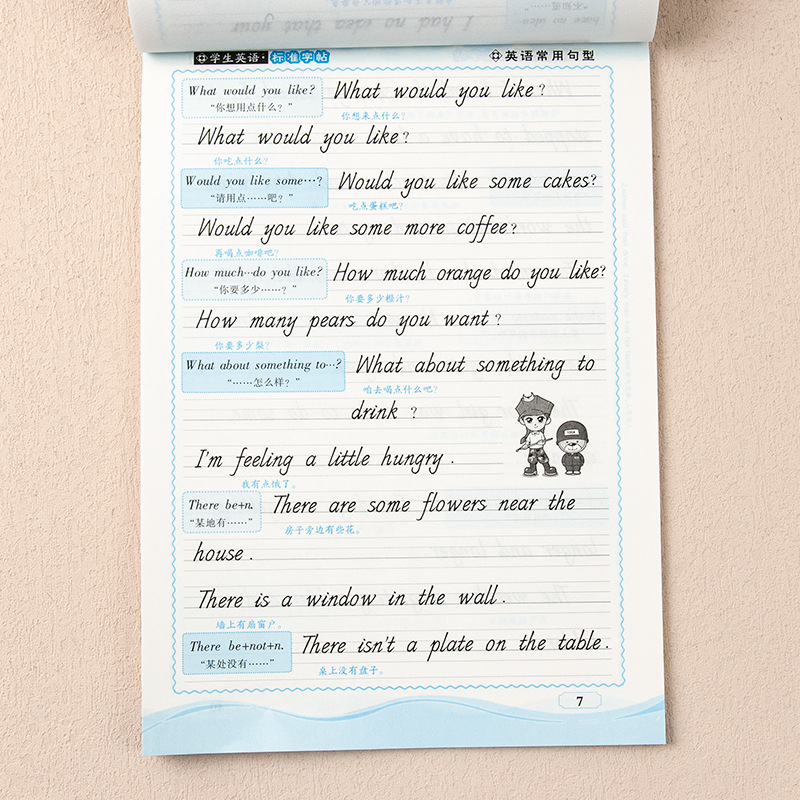 I had no idea that your
have no idea
"不知道……"
学生英语·标准字帖
英语常用句型
What would you like?
"你想用点什么？"
What would you like?
你想来点什么?
What would you like?
你吃点什么?
Would you like some…?
"请用点……吧？"
Would you like some cakes?
吃点蛋糕吧?
Would you like some more coffee?
再喝点咖啡吧?
How much…do you like?
"你要多少……？"
How much orange do you like?
你要多少橙汁?
How many pears do you want?
你要多少梨?
What about something to…?
"……怎么样？"
What about something to
咱去喝点什么吧?
drink ?
I'm feeling a little hungry.
我有点饿了。
There be+n.
"某地有……"
There are some flowers near the
房子旁边有些花。
house.
There is a window in the wall.
墙上有扇窗户。
There be+not+n.
"某处没有……"
There isn't a plate on the table.
桌上没有盘子。
7